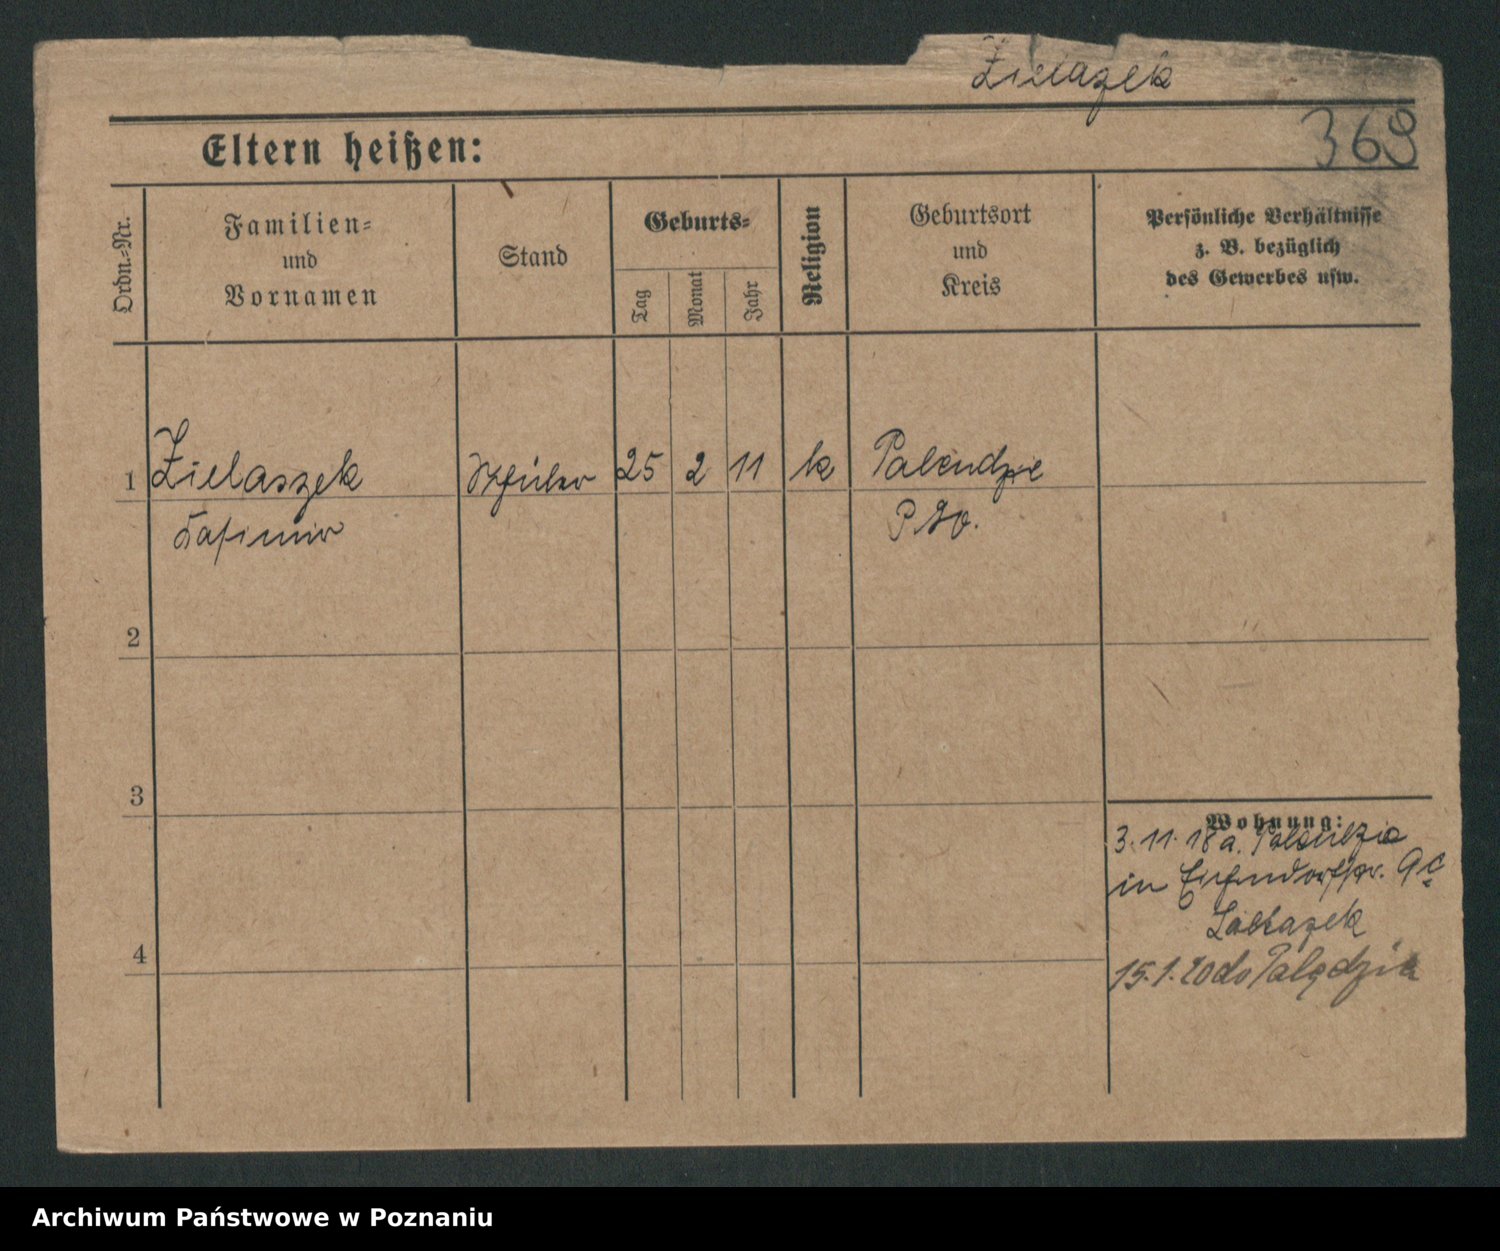 Zielazek
369
Eltern heißen:
Ordn.-Nr.
Familien-
und
Vornamen
Stand
Geburts-
Tag
Monat
Jahr
Religion
Geburtsort
und
Kreis
Persönliche Verhältnisse
z. B. bezüglich
des Gewerbes usw.
1 Zielaszek Schüler 25 2 11 k Palendzie
Kasimir P. W.
2
3
4
Wohnung:
3.11.18 a. Palendzie
in 9
15.1.20 do Palędzia
Archiwum Państwowe w Poznaniu